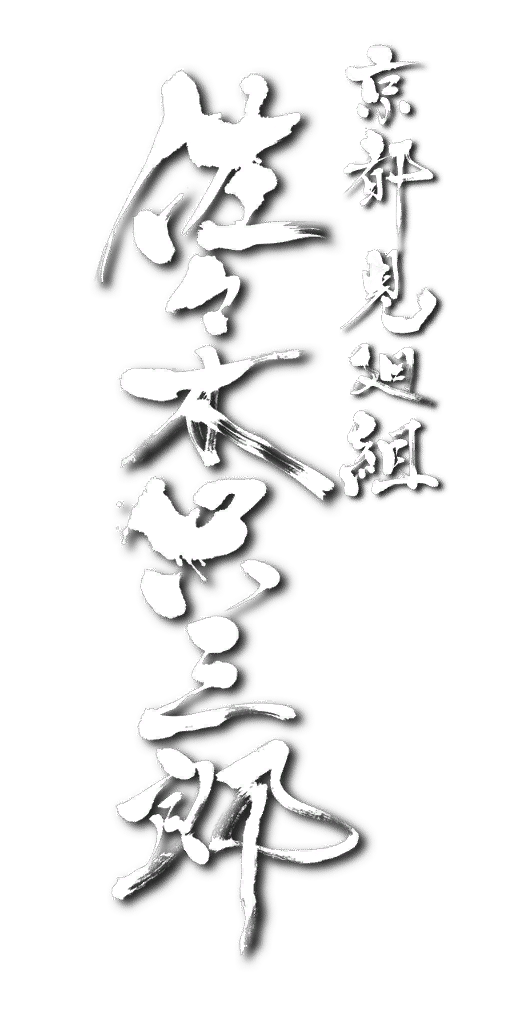 京都見廻組
佐々木只三郎